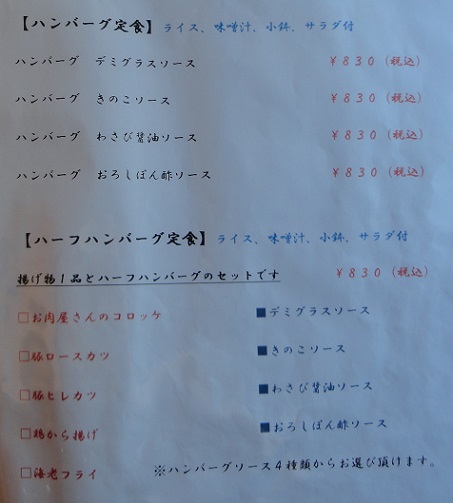 【ハンバーグ定食】 ライス、味噌汁、小鉢、サラダ付
ハンバーグ デミグラスソース ￥830(税込)
ハンバーグ きのこソース ￥830(税込)
ハンバーグ わさび醤油ソース ￥830(税込)
ハンバーグ おろしぽん酢ソース ￥830(税込)
【ハーフハンバーグ定食】 ライス、味噌汁、小鉢、サラダ付
揚げ物1品とハーフハンバーグのセットです ￥830(税込)
□お肉屋さんのコロッケ ■デミグラスソース
□豚ロースカツ ■きのこソース
□豚ヒレカツ ■わさび醤油ソース
□鶏から揚げ ■おろしぽん酢ソース
□海老フライ ※ハンバーグソース4種類からお選び頂けます。